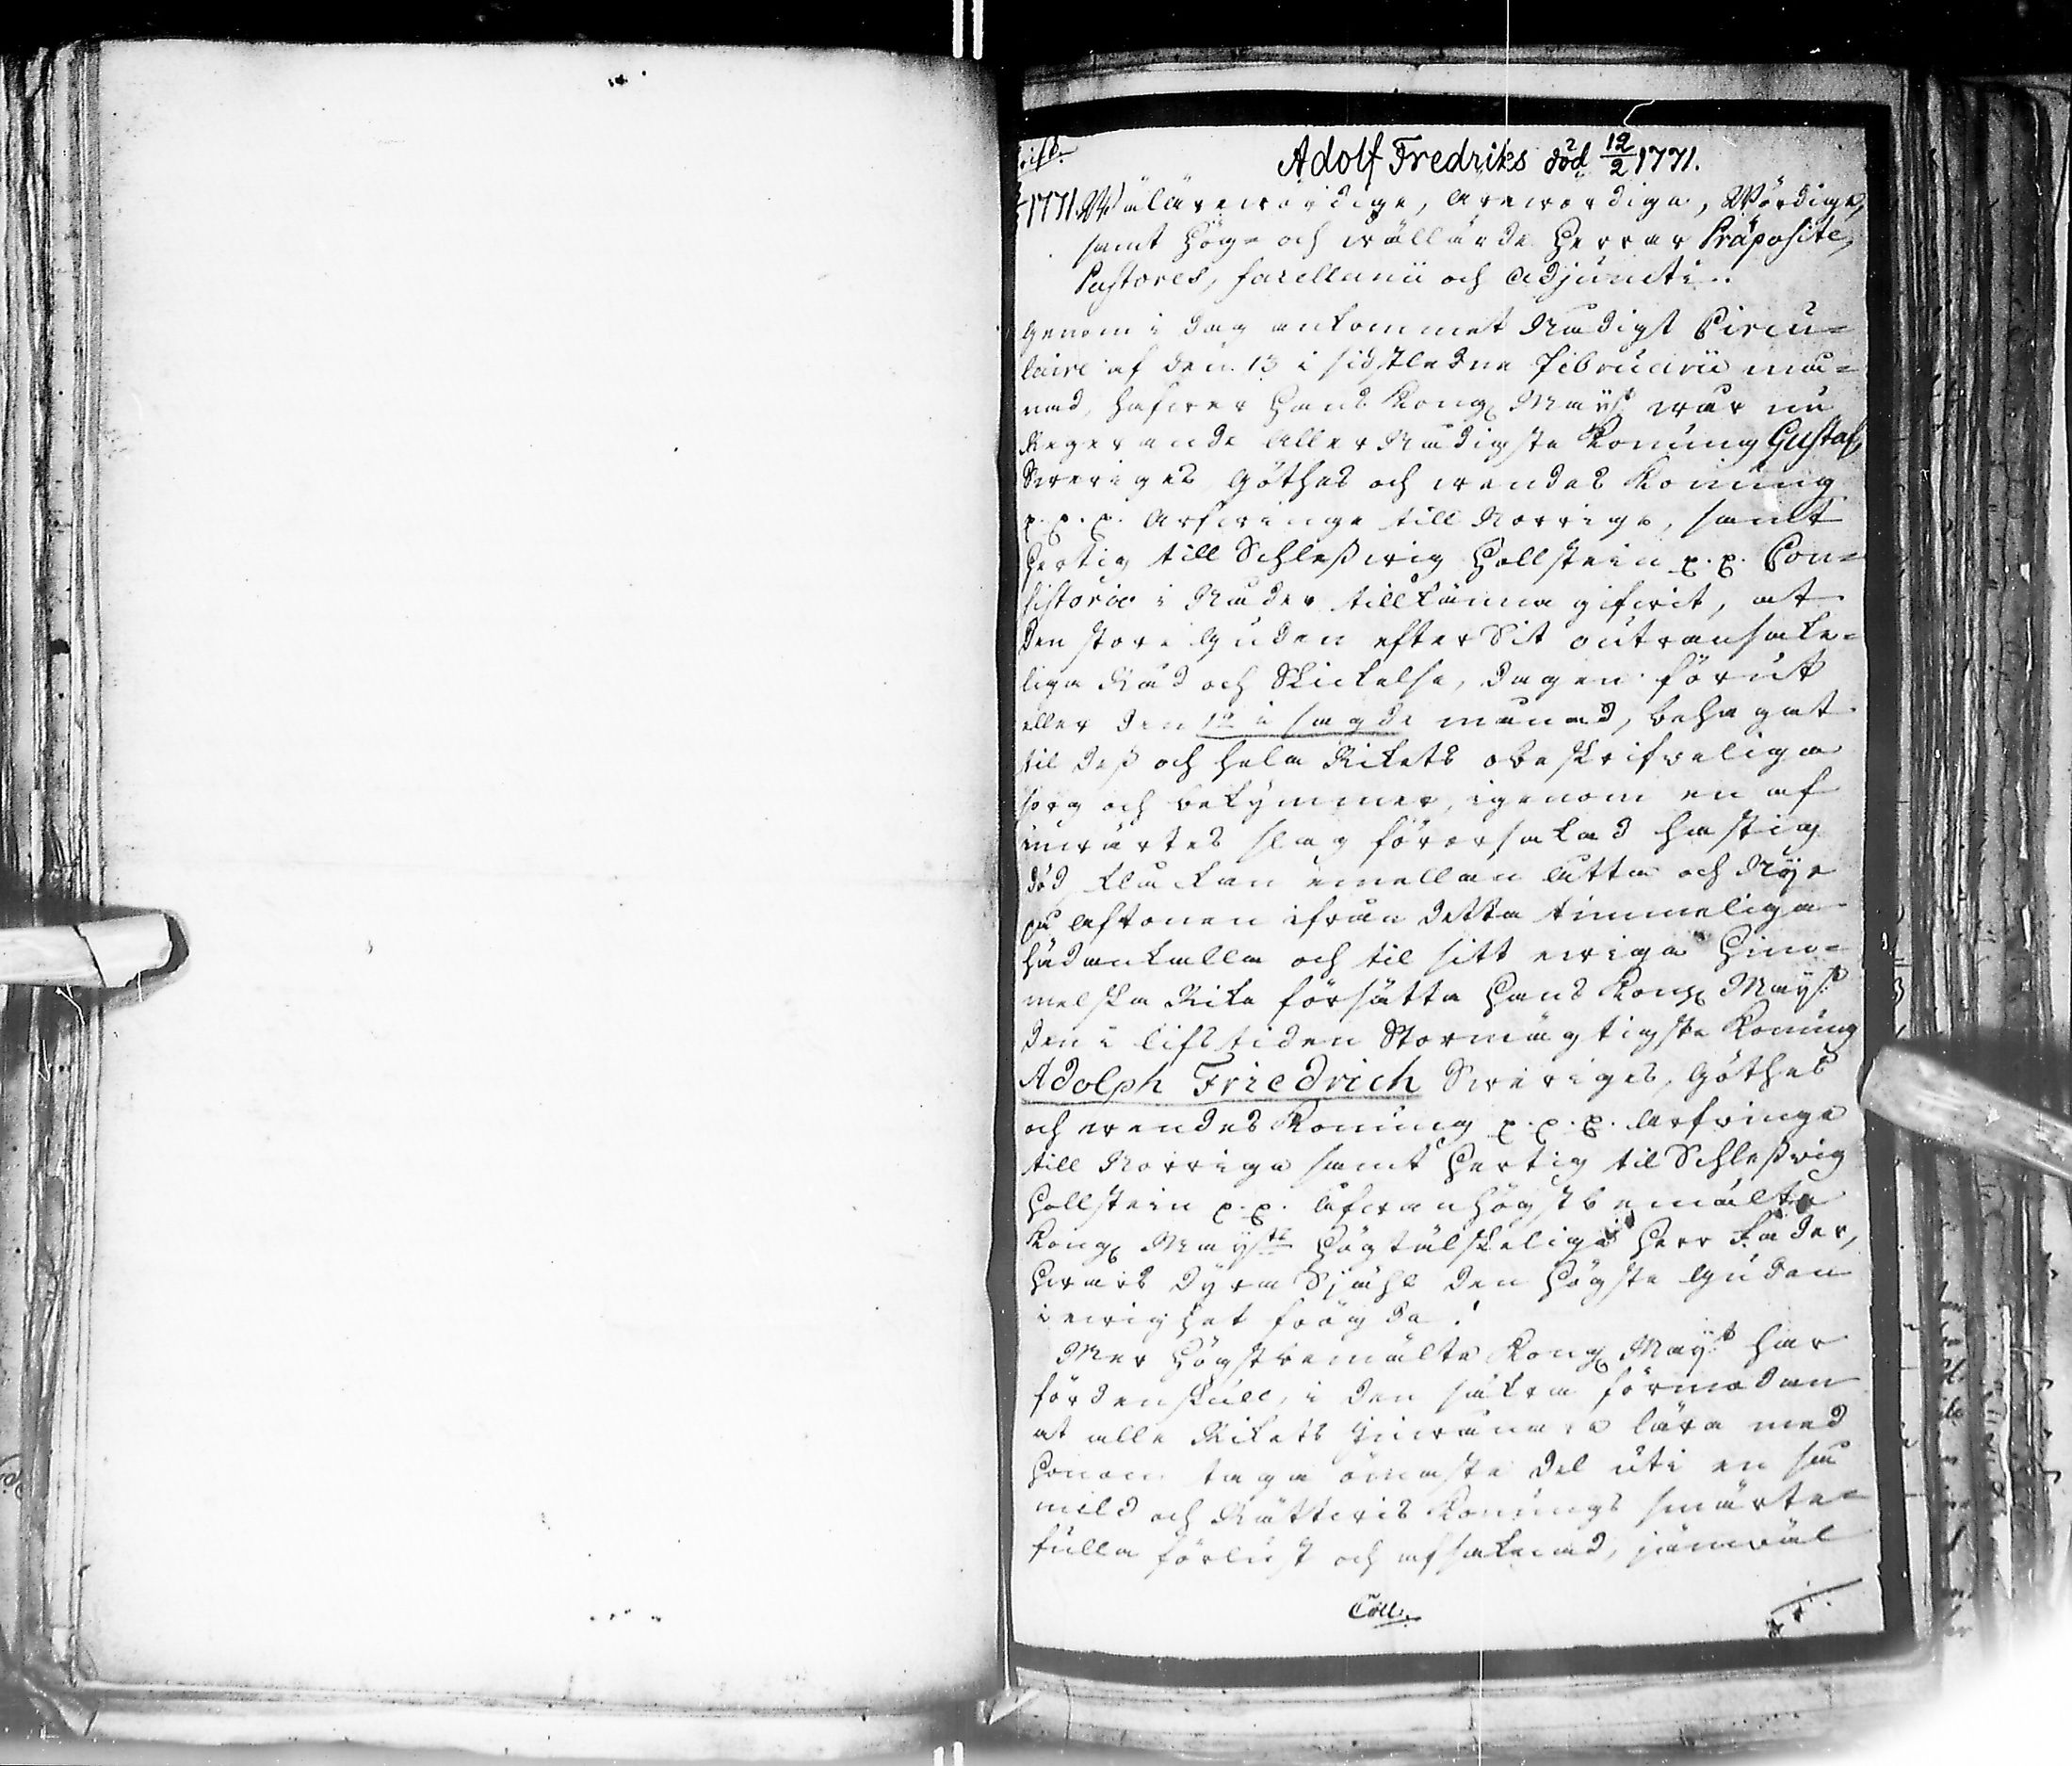 rift.
Adolf Fredriks död 12/2 1771.
1771. Wälärewördige, Ärewördige, Wördige,
samt Höge och wällärde Herrar Präposite,
Pastores, Sacellanii och Adjuncti.
Genom i dag ankommet Nådigt Circu=
laire af den 13 i sidstledne Februarii må=
nad, hafwer Hans Kongl Mayst wår nu
Regerande Aller Nådigste Konung Gustaf,
Sweriges Göthes och wendes Konung
p. p. p. Arfwinge till Norrige, samt
Hertig till Schleßwig Hollstein p. p. Con=
sistorio i Nåder tillkänna gifwit, at
den store Guden efter Sit outransake=
liga Råd och Skickelse, dagen förut
eller den 12 i sagde månad, behagat
til deß och hela Rikets obeskrifveliga
sorg och bekymmer, igenom en af
inwärtes slag förorsakad hastig
död, klockan emellan åtta och Nijo
på aftonen ifrån detta timmeliga
hädankalla och til sitt ewiga Him=
melska Rike försätta Hans Kongl Mayst
den i lifstiden Stormägtigste Konung
Adolph Friedrich Sweriges, Göthes
och wendes Konung p. p. p. Arfvinge
till Norrige samt Hertig til Schleßvig
Hollstein p. p. åfwanhögstbemälte
Kongl Maysts Högtälskelige Herr Fader,
Hwars dyra Sjähl den Högste Guden
i ewighet frögda!
Mer Högstbemälte Kongl Mayst har
fördenskull, i den säkra förmodan
at alle Rikets Inwånare lära med
Honom taga ömaste del uti en så
mild och Rättwis Konungs smärte=
fulla förlust och afsaknad, jämwäl
Coll.